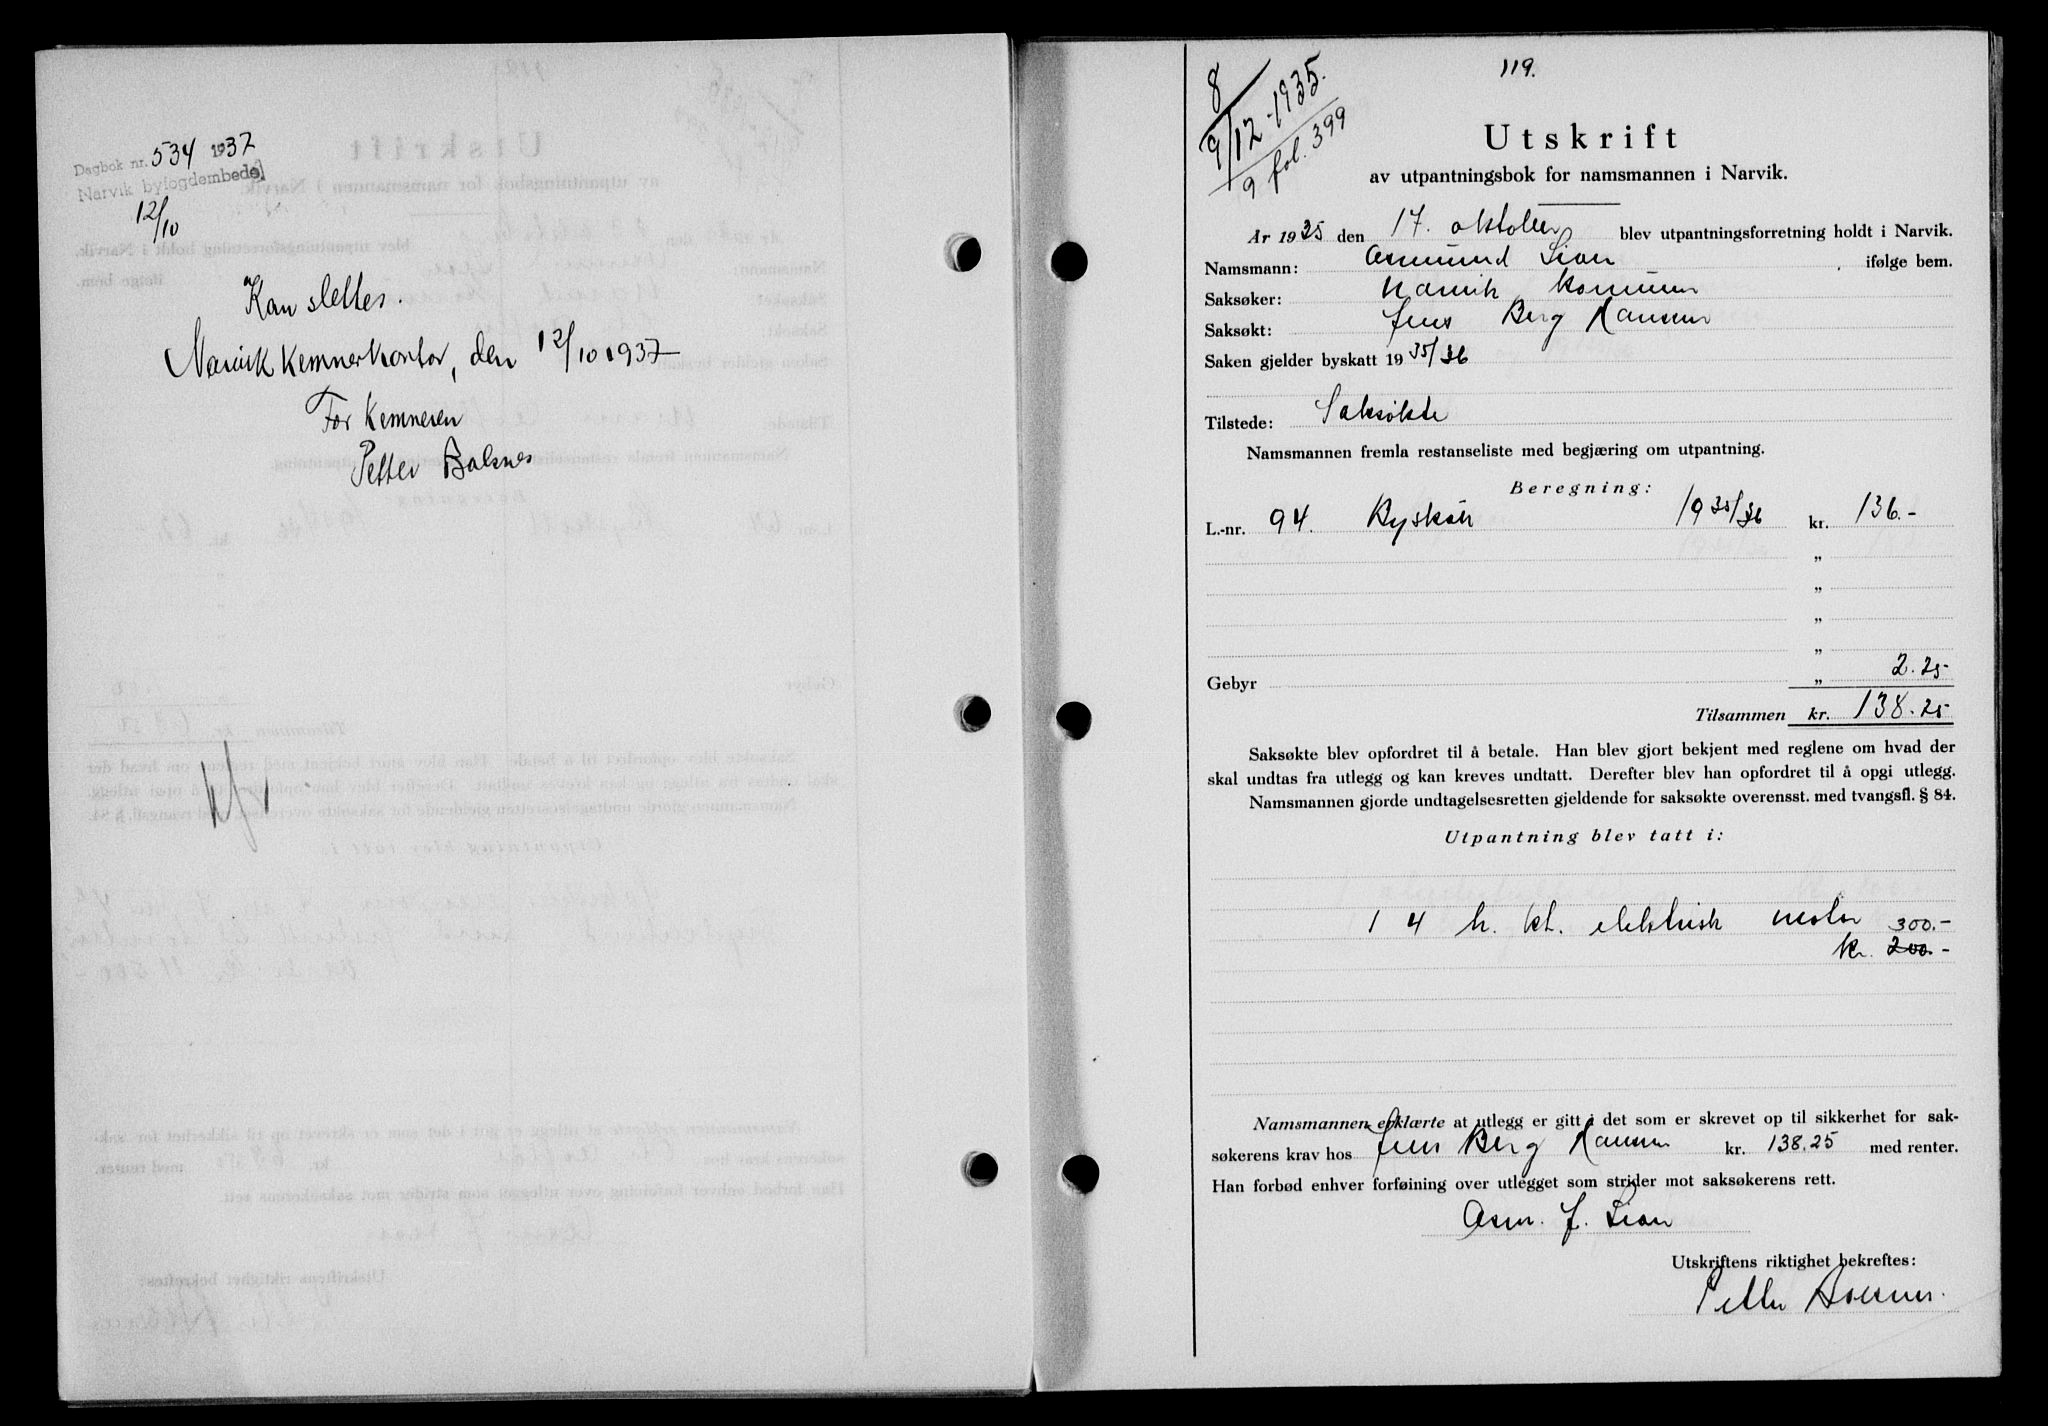 Dagbok nr. 534 1937
Narvik byfogdembede
12/10
Kan slettes.
Narvik Kemnerkontor, den 12/10 1937
For Kemneren
Petter Balsnes
119.
8
9/12-1935.
9 fol. 399
Utskrift
av utpantningsbok for namsmannen i Narvik.
År 1935 den 17. oktober blev utpantningsforretning holdt i Narvik.
Namsmann: Asmund Lian, ifølge bem.
Saksøker: Narvik kommune
Saksøkt: Jens Berg Hansen
Saken gjelder byskatt 1935/36
Tilstede: Saksøkte
Namsmannen fremla restanseliste med begjæring om utpantning.
Beregning:
L.-nr. 94. Byskatt 1935/36 kr. 136.-
„
„
„
„
Gebyr „ 2.25
Tilsammen kr. 138.25
Saksøkte blev opfordret til å betale. Han blev gjort bekjent med reglene om hvad der
skal undtas fra utlegg og kan kreves undtatt. Derefter blev han opfordret til å opgi utlegg.
Namsmannen gjorde undtagelsesretten gjeldende for saksøkte overensst. med tvangsfl. § 84.
Utpantning blev tatt i:
1 4 h. kt. elektrisk motor 300.-
kr. 200.-
Namsmannen erklærte at utlegg er gitt i det som er skrevet op til sikkerhet for sak-
søkerens krav hos Jens Berg Hansen kr. 138.25 med renter.
Han forbød enhver forføining over utlegget som strider mot saksøkerens rett.
Asm. J. Lian
Utskriftens riktighet bekreftes:
Petter Balsnes.